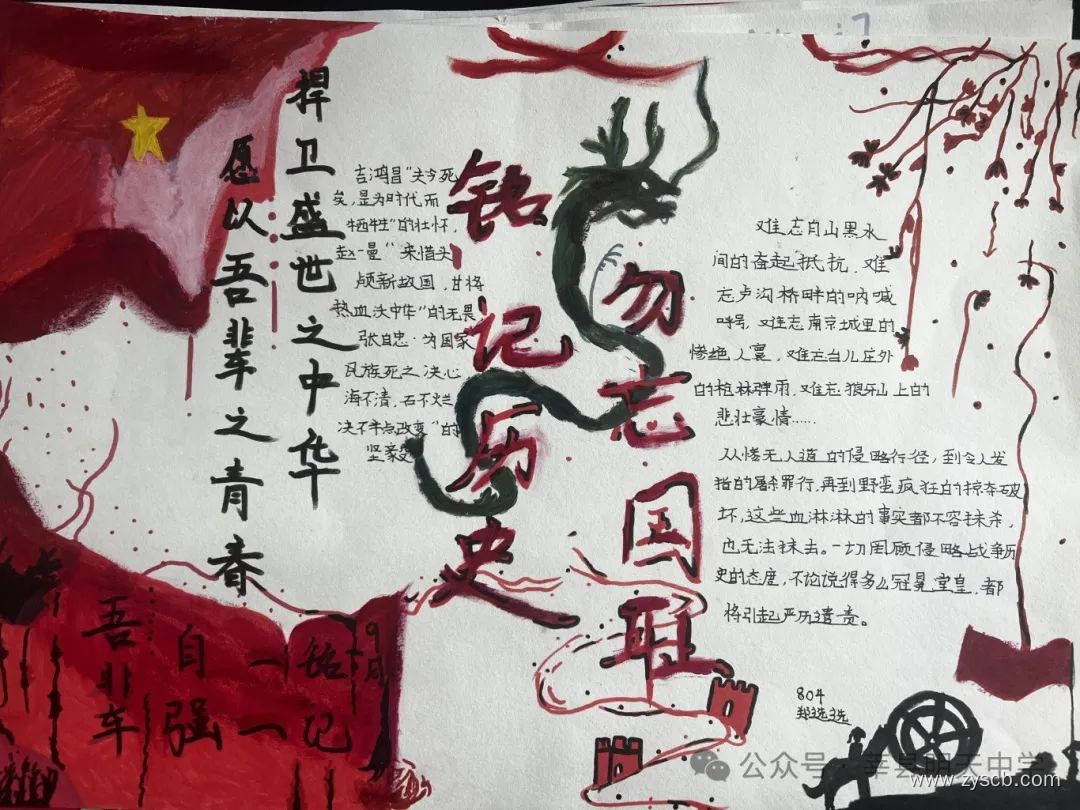 捍卫盛世之中华
愿以吾辈之青春
铭记历史
勿忘国耻
吉鸿昌"夫今死
矣,是为时代而
牺牲"的壮怀,
赵一曼"未惜头
颅新故国,甘将
热血沃中华"的无畏
张自忠·为国家
民族死之决心
海不清,石不烂
决不半点改变"的
坚毅
难忘白山黑水
间的奋起抵抗,难
忘卢沟桥畔的呐喊
呼号,难忘南京城里的
惨绝人寰,难忘台儿庄外
的枪林弹雨,难忘狼牙山上的
悲壮豪情……
从惨无人道的侵略行径,到令人发
指的屠杀罪行,再到野蛮疯狂的掠夺破
坏,这些血淋淋的事实都不容抹杀,
也无法抹去。一切罔顾侵略战争历
史的态度,不论说得多么冠冕堂皇,都
将引起严厉谴责。
铭记
一一
自强
吾非车
804
公众号·莘县明天中学
www.zyscb.com